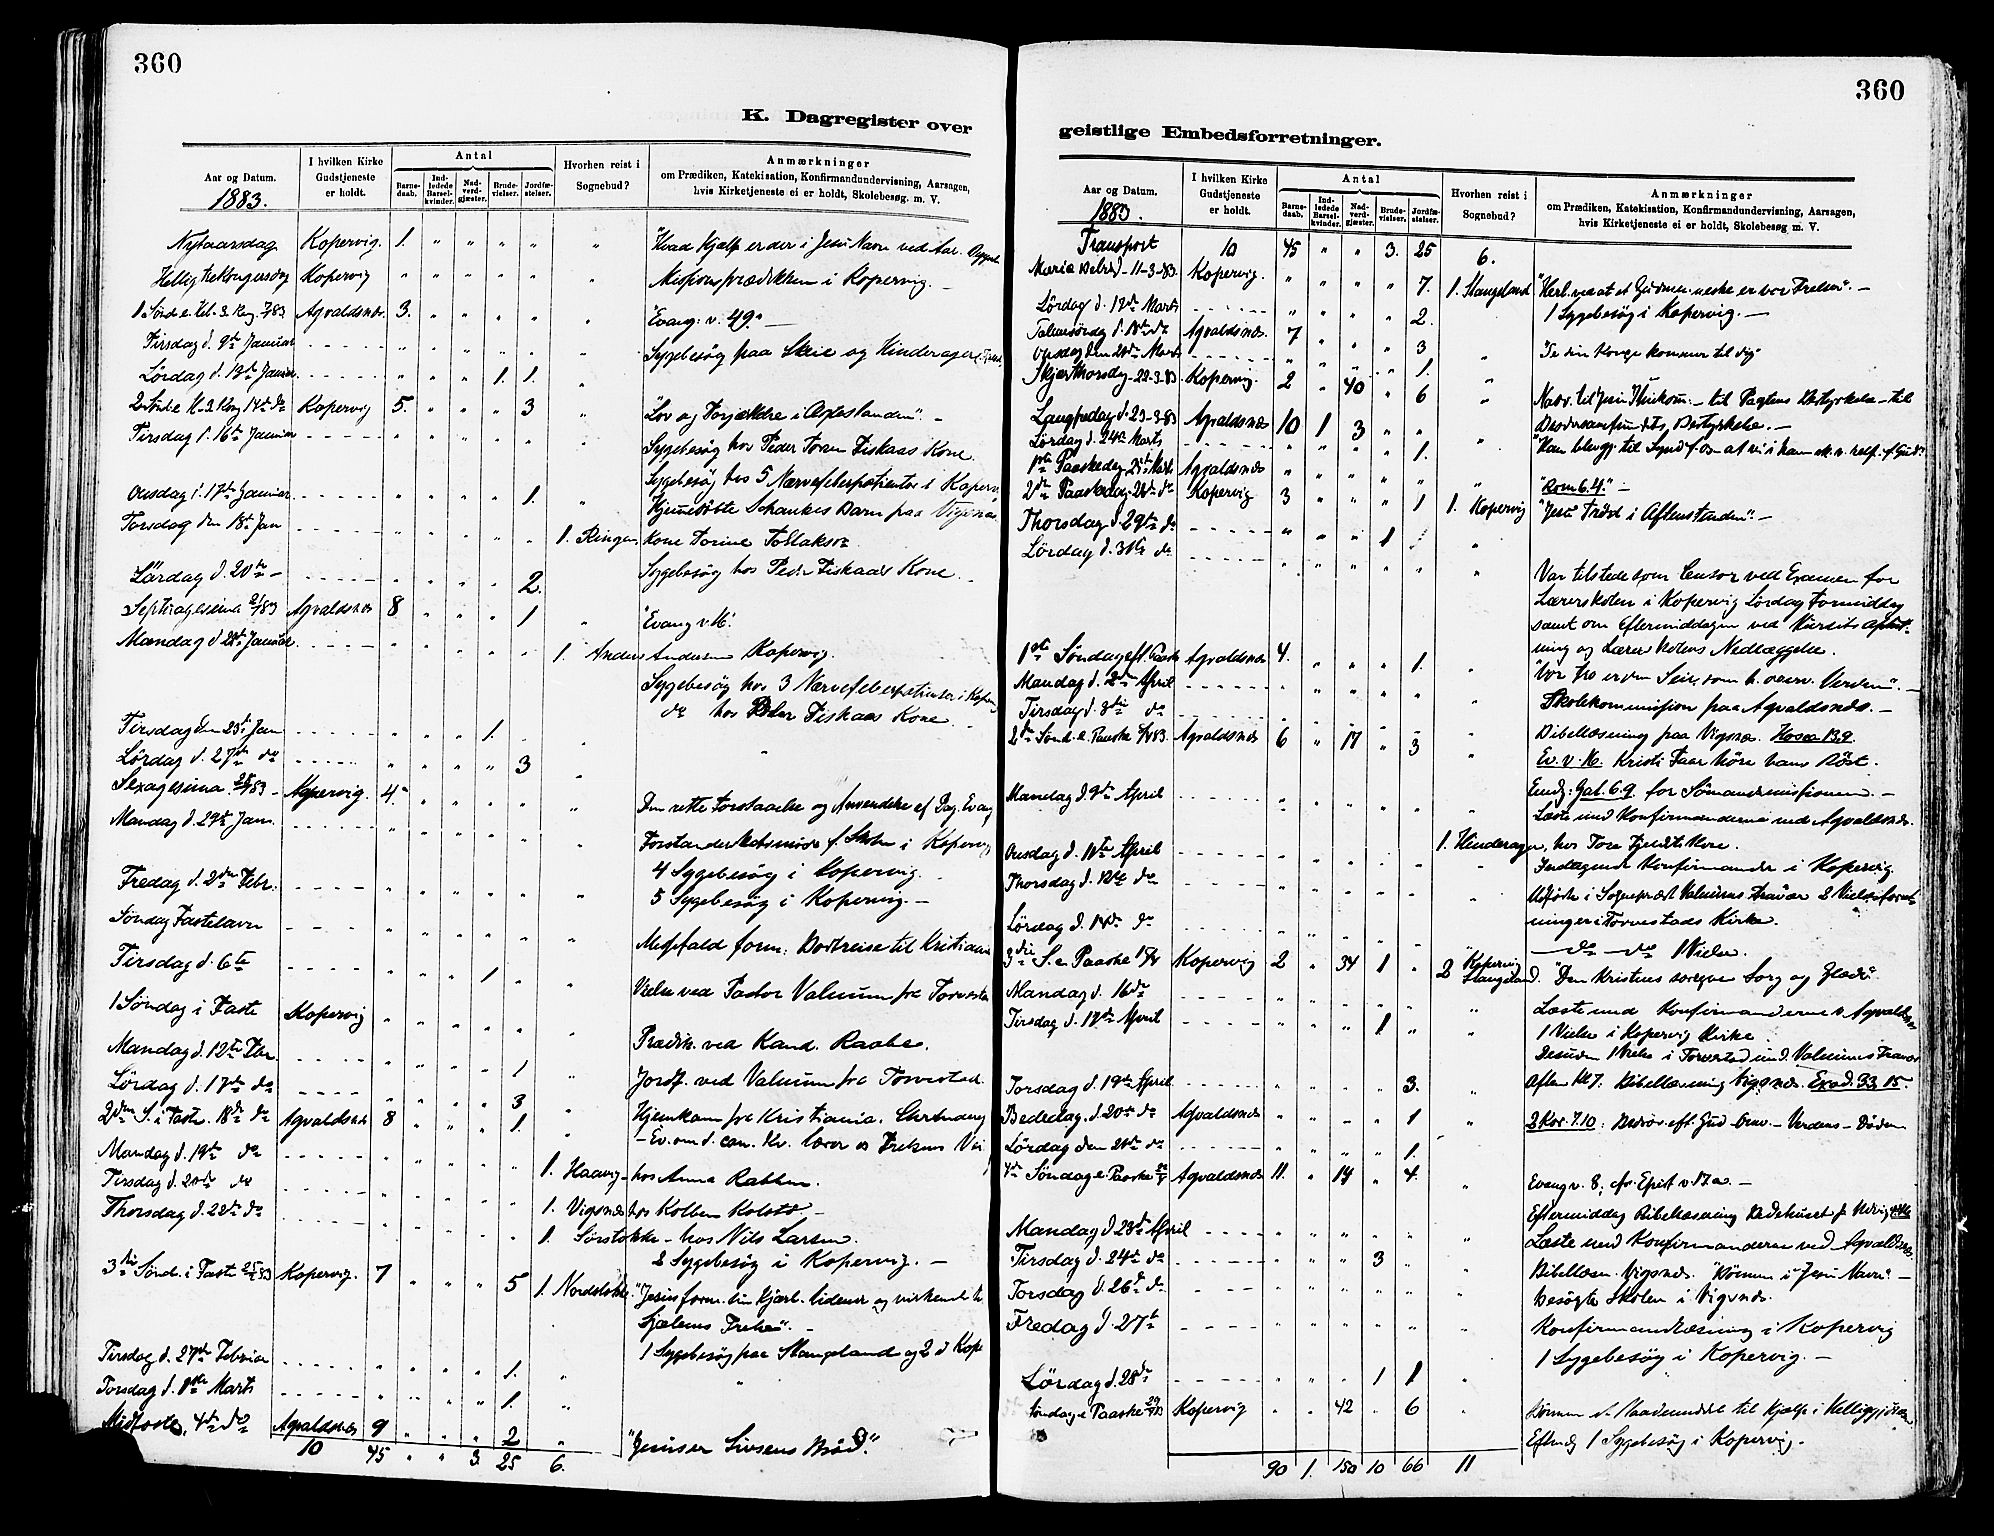 360
K. Dagregister over
Aar og Datum.
1883.
I hvilken Kirke Gudstjeneste er holdt.
Antal
Barnedaab.
Indledede Barselkvinder.
Nadverdgjæster.
Brudevielser.
Jordfæstelser.
Hvorhen reist i Sognebud?
Anmærkninger
om Prædiken, Katekisation, Konfirmandundervisning, Aarsagen,
hvis Kirketjeneste ei er holdt, Skolebesøg. m. V.
Nytaarsdag Kopervig. 1. " " " " " Hvad Hjælp er der i Jesu Navn ved Aar.
Hellig trekongersdag Kopervig " " " " " " Missionsprædikken i Kopervig. —
1 Sønd. e. Hel. 3 Kong. 7/83 Agvaldsnæs 3. " " " " " "Evang: v. 49." —
Tirsdag d. 9de Januar " " " " " " Sygebesøg paa Skeie og Hinderager
Lørdag d. 13de Januar " " " 1. 1. "
2 Sønd. e. H. 3. Kong 14de do Kopervig 5. " " " 3 " "Lov og Forjættelse i
Tirsdag d. 16de Januar " " " " " Sygebesøg hos Peder Fiskaas Kone
Sygebesøg hos 5 Nervefeberpatienter i Koperv
Onsdag d. 17de Januar " " " " 1. " Hjemmedøbte Schankes Barn paa Vigsnæs
Torsdag den 18de Jan " " " " " 1. Ringen, Kone Torine
Lørdag d. 20de — " " " " 2. Sygebesøg hos Peder Fiskaas Kone
Septuagesima 21/83 Agvaldsnæs 8 " " " 1 " "Evang v. 16.
Mandag d 22de Januar " " " " " 1. Anders Andersen Kopervig.
Sygebesøg hos 3 Nervefeberpatienter i Koperv
do hos Peder Fiskaas Kone
Tirsdag den 23de Jan " " " 1. " "
Lørdag d. 27de do " " " " 3 " "
Sexagesima 28/83 Kopervig. 4. " " " " " Den rette Forstaaelse og Anvendelse af Dag. Evang
Mandag d. 29de Jan. " " " " " " Forstanderskabsmøde f. Skolen i Kopervig
4 Sygebesøg i Kopervig.
Fredag d. 2den Febr. " " " " " 5 Sygebesøg i Kopervig —
Søndag Fastelavn " " " " " " Messefald form: Bortreise til Kristiania
Tirsdag d. 6te " " " 1 " " Vielse ved Pastor Valeur fra Torvestad
1 Søndag i Faste Kopervig " " " " " " Prædik. ved Kand. Raabe.
Mandag d. 12te Febr. " " " " 1 " Jordf. ved fra Torvestad.
Lørdag d. 17de do " " " " 3 " Hjemkom fra Kristiania.
2den S. i Faste. 18de do Agvaldsnæs 8 " " " 1. " — Ev. om d. can. Kv. lærer os Frelsens Vei
Mandag d. 19de do " " " " " 1. Haavig — hos Anna
Tirsdag d. 20de do " " " " " 1. Vigsnæs hos
Thorsdag d. 22de do " " " " " 1. Sørstokke — hos Nils Larsen.
2 Sygebesøg i Kopervig. —
3die Sønd. i Faste 25/83 Kopervig. 7 " " " 5 1. Nordstokke. "Jesus form. sin Kjærl. lidende og virkende til
Sjælens Frelse". —
1 Sygebesøg paa Stangeland og 2 i Kope
Tirsdag d. 27de Februar " " " " 1. " "
Torsdag d. 1ste Marts " " " " 1. "
Midfaste. 4de do Agvaldsnæs 9 " " " 2 " "Jesus er Livsens Brød".
10 45 " " 3. 25 6.
360
geistlige Embedsforretninger.
Aar og Datum.
1883.
I hvilken Kirke Gudstjeneste er holdt.
Antal
Barnedaab.
Indledede Barselkvinder.
Nadverdgjæster.
Brudevielser.
Jordfæstelser.
Hvorhen reist i Sognebud?
Anmærkninger
om Prædiken, Katekisation, Konfirmandundervisning, Aarsagen,
hvis Kirketjeneste ei er holdt, Skolebesøg. m. V.
Transport 10 45 " " 3. 25 6.
Mariæ Bebud — 11-3-83 Kopervig. " " " " 7. 1. Stangeland "Herl. ved at et Gudmenneske er vor Frelser". —
Lørdag d. 17de Marts " " " " 2. 1 Sygebesøg i Kopervig. —
Palmesøndag d. 18de do Agvaldsnæs 7 " " " 3 " "Se din Konge kommer til dig"
Onsdag den 21de Marts " " " " 1.
Skjærthorsdag — 22-3-83 Kopervig. 2 " 40 " 6 " Nadv. til Jesu Ihukom: — til Pagtens Bestyrkelse — til
Brodersamfundets Bestyrkelse. —
Langfredag d. 23-3-83 Agvaldsnæs 10 1 3 " " " "Han blev gj. til Synd f. os — at vi i ham sk. v. retf. f. Gud"
Lørdag d. 24de Marts " " " " 1.
1ste Paaskedag 25de Marts Agvaldsnæs " " " " " " "Rom 6.4." —
2den Paaskedag. 26de do Kopervig 3 " " " 1 1. Kopervig "Jesu Træd i Aftenstunden". —
Thorsdag d. 29de do " " " 1 " "
Lørdag d. 31te do " " " " " " Var tilstede som Censor ved Examen for
Lærerskolen i Kopervig Lørdag Formiddag
samt om Eftermiddagen ved Kursets Afslut-
ning og Lærerskolens Nedlæggelse.
1ste Søndag eft. Paaske Agvaldsnæs 4. " " " 1. " "Vor Tro er den Seier, som h. overv. Verden". —
Mandag d. 2den April " " " " " " Skolekommission paa Agvaldsnæs. —
Tirsdag d. 3die do " " " " " " Bibellæsning paa Vigsnæs. Hosea 13.9.
2den Sønd. e. Paaske 8/4 83. Agvaldsnæs 6 " 17 " 3 " Ev. v. 16. Kristi Faar høre hans Røst.
Gal. 6.9. for Sømandsmissionen. —
Mandag d. 9de April " " " " " " Læste med Konfirmanderne ved Agvaldsnæs.
Onsdag d. 11te April " " " " " 1. Hinderager, hos Tore Kone.
Thorsdag d. 12te do " " " " " " Indtegnede Konfirmander i Kopervig
Udførte i Sognepræst Valeurs Fravær 2 Vielsesforret-
ninger i Torvestads Kirke.
Lørdag d. 14de do " " " " " " — do — do 1 Vielse.
3die S. e Paaske 15/4 Kopervig 2 " 34 1 " 2 Kopervig Stangeland. "Den Kristnes Sorg og Glæde".
Mandag d. 16de " " " " " " Læste med Konfirmanderne v. Agvaldsnæs
Tirsdag d. 17de April " " " 1 " " 1 Vielse i Kopervig Kirke.
Desuden 1 Vielse i Torvestad und. Valeurs Fravær
Torsdag d. 19de April " " " " 3. " Aften Kl 7. Bibellæsning Vigsnæs. Exod. 33.15.
Bededag. d. 20de do Agvaldsnæs " " " " 1 " 2 Kor. 7.10: Bedrøv. eft. Gud Omv. — Verdens — Døden
Lørdag den 21de do " " " " 1.
4de Søndag e. Paaske 22/4 Agvaldsnæs 11 " 14 " 4. " Evang v. 8, cfr. Epist v. 17 a. —
Eftermiddag Bibellæsning Bedehuset
Mandag d. 23de April " " " " " " Læste med Konfirmanderne ved Agvaldsnæs.
Tirsdag d. 24de do " " " 3 " " Bibellæsn. Vigsnæs. "Bønnen i Jesu Navn". —
Torsdag d. 26de do " " " " " " Besøgte Skolen i Vigsnæs.
Fredag d. 27de " " " " " " Konfirmandlæsning i Kopervig
1 Sygebesøg i Kopervig. —
Lørdag d. 28de " " " 1 1 "
Søndag e. Paaske 29/4 83 Kopervig " " 42 " 6 " Bønnen et Naademiddel til Hjælp i Helliggjørelsen
Eftmdg 1 Sygebesøg i Kopervig.
90 1. 150 10 66 11